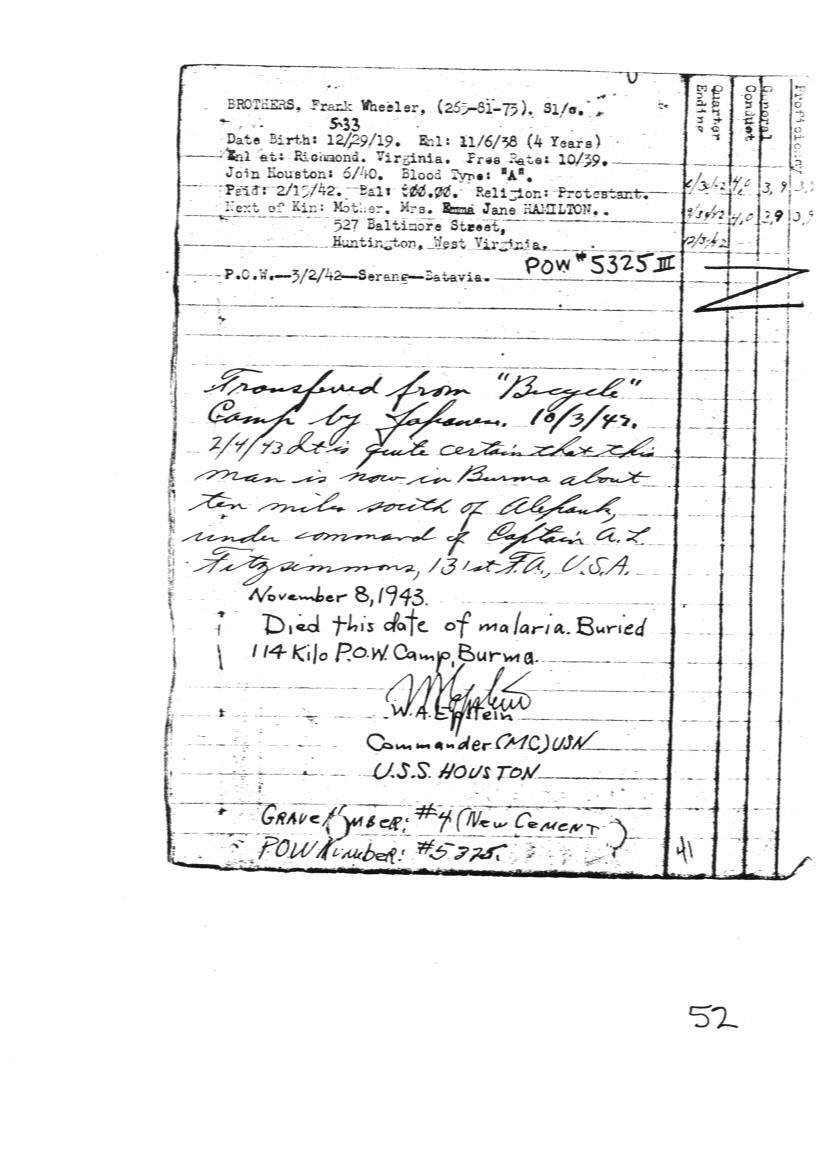 BROTHERS, Frank Wheeler, (265-81-73). S1/c.
5-33
Date Birth: 12/29/19. Enl: 11/6/38 (4 Years)
Enl at: Richmond. Virginia. Pres Rate: 10/39.
Join Houston: 6/40. Blood Type: "A".
Paid: 2/15/42. Bal: $00.00. Religion: Protestant.
Next of Kin: Mother. Mrs. Emma Jane HAMILTON..
527 Baltimore Street,
Huntington, West Virginia.
POW #5325 III
P.O.W.--3/2/42--Serang--Batavia.
Quarter Ending
Conduct
General
Proficiency
4,0 3,9
4,0 3,9 3,9
Transferred from "Bicycle"
Camp by Japanese. 10/3/42.
2/4/43 It is quite certain that this
man is now in Burma about
ten miles south of Alepauk,
under command of Captain A. L.
Fitzsimmons, 131st F.A., U.S.A.
November 8, 1943.
Died this date of malaria. Buried
114 Kilo P.O.W. Camp, Burma.
W.A. Epstein
Commander (MC) USN
U.S.S. HOUSTON
GRAVE NUMBER: #4 (NEW CEMENT)
POW Number: #5325.
41
52